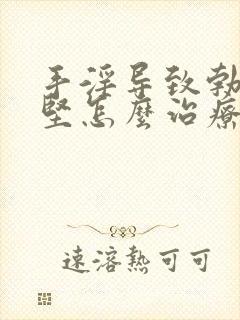 手淫导致勃
坚怎麽治療
速溶熱可可